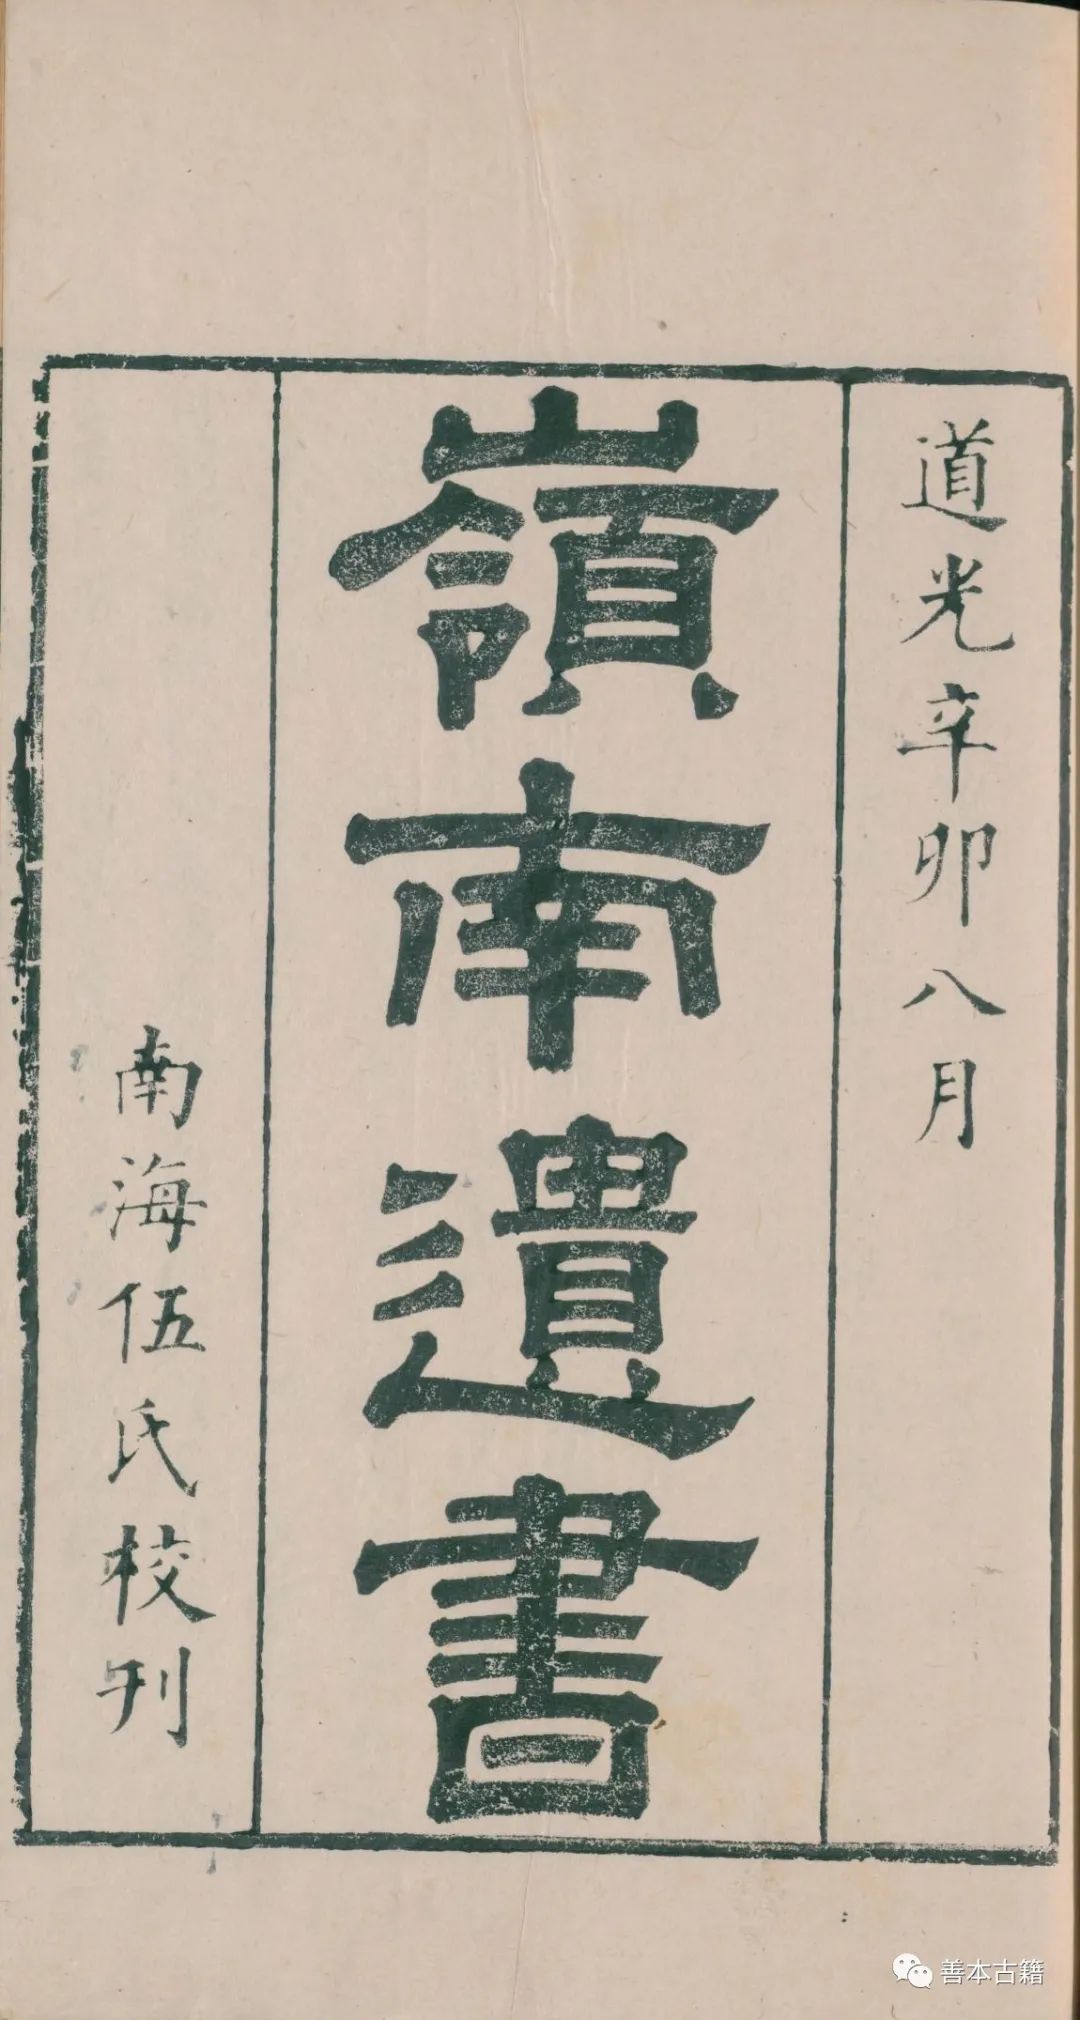 道光辛卯八月
嶺南遺書
南海伍氏校刊
善本古籍